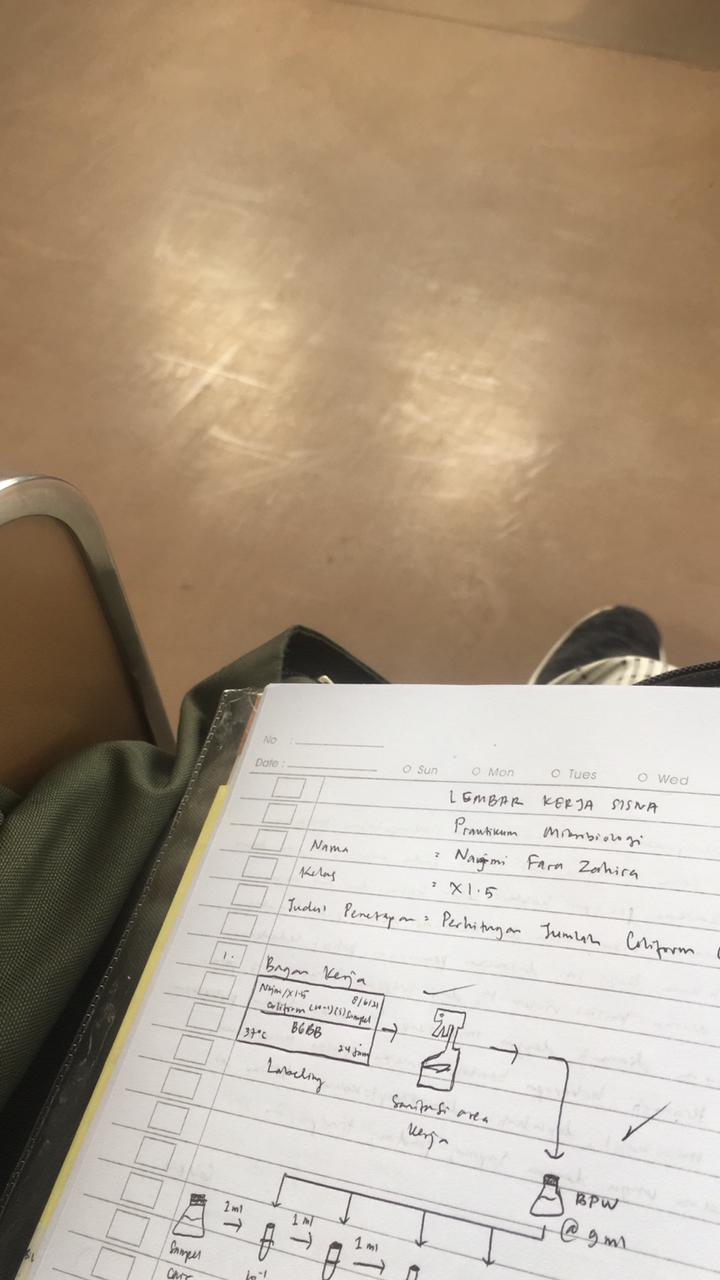 No :
Date :
Sun Mon Tues Wed
LEMBAR KERJA SISWA
Praktikum Mikrobiologi
Nama : Najmi Fara Zahira
Kelas : XI.5
Judul Penetapan : Perhitungan Jumlah Coliform
1. Bagan Kerja
Najmi/XI-5
Coliform (10-1)(1) Sampel
37°C BGBB
24 jam
Labeling
Sanitasi area
kerja
BPW
@ 9 ml
1 ml 1 ml 1 ml
Sampel
cair 10-1